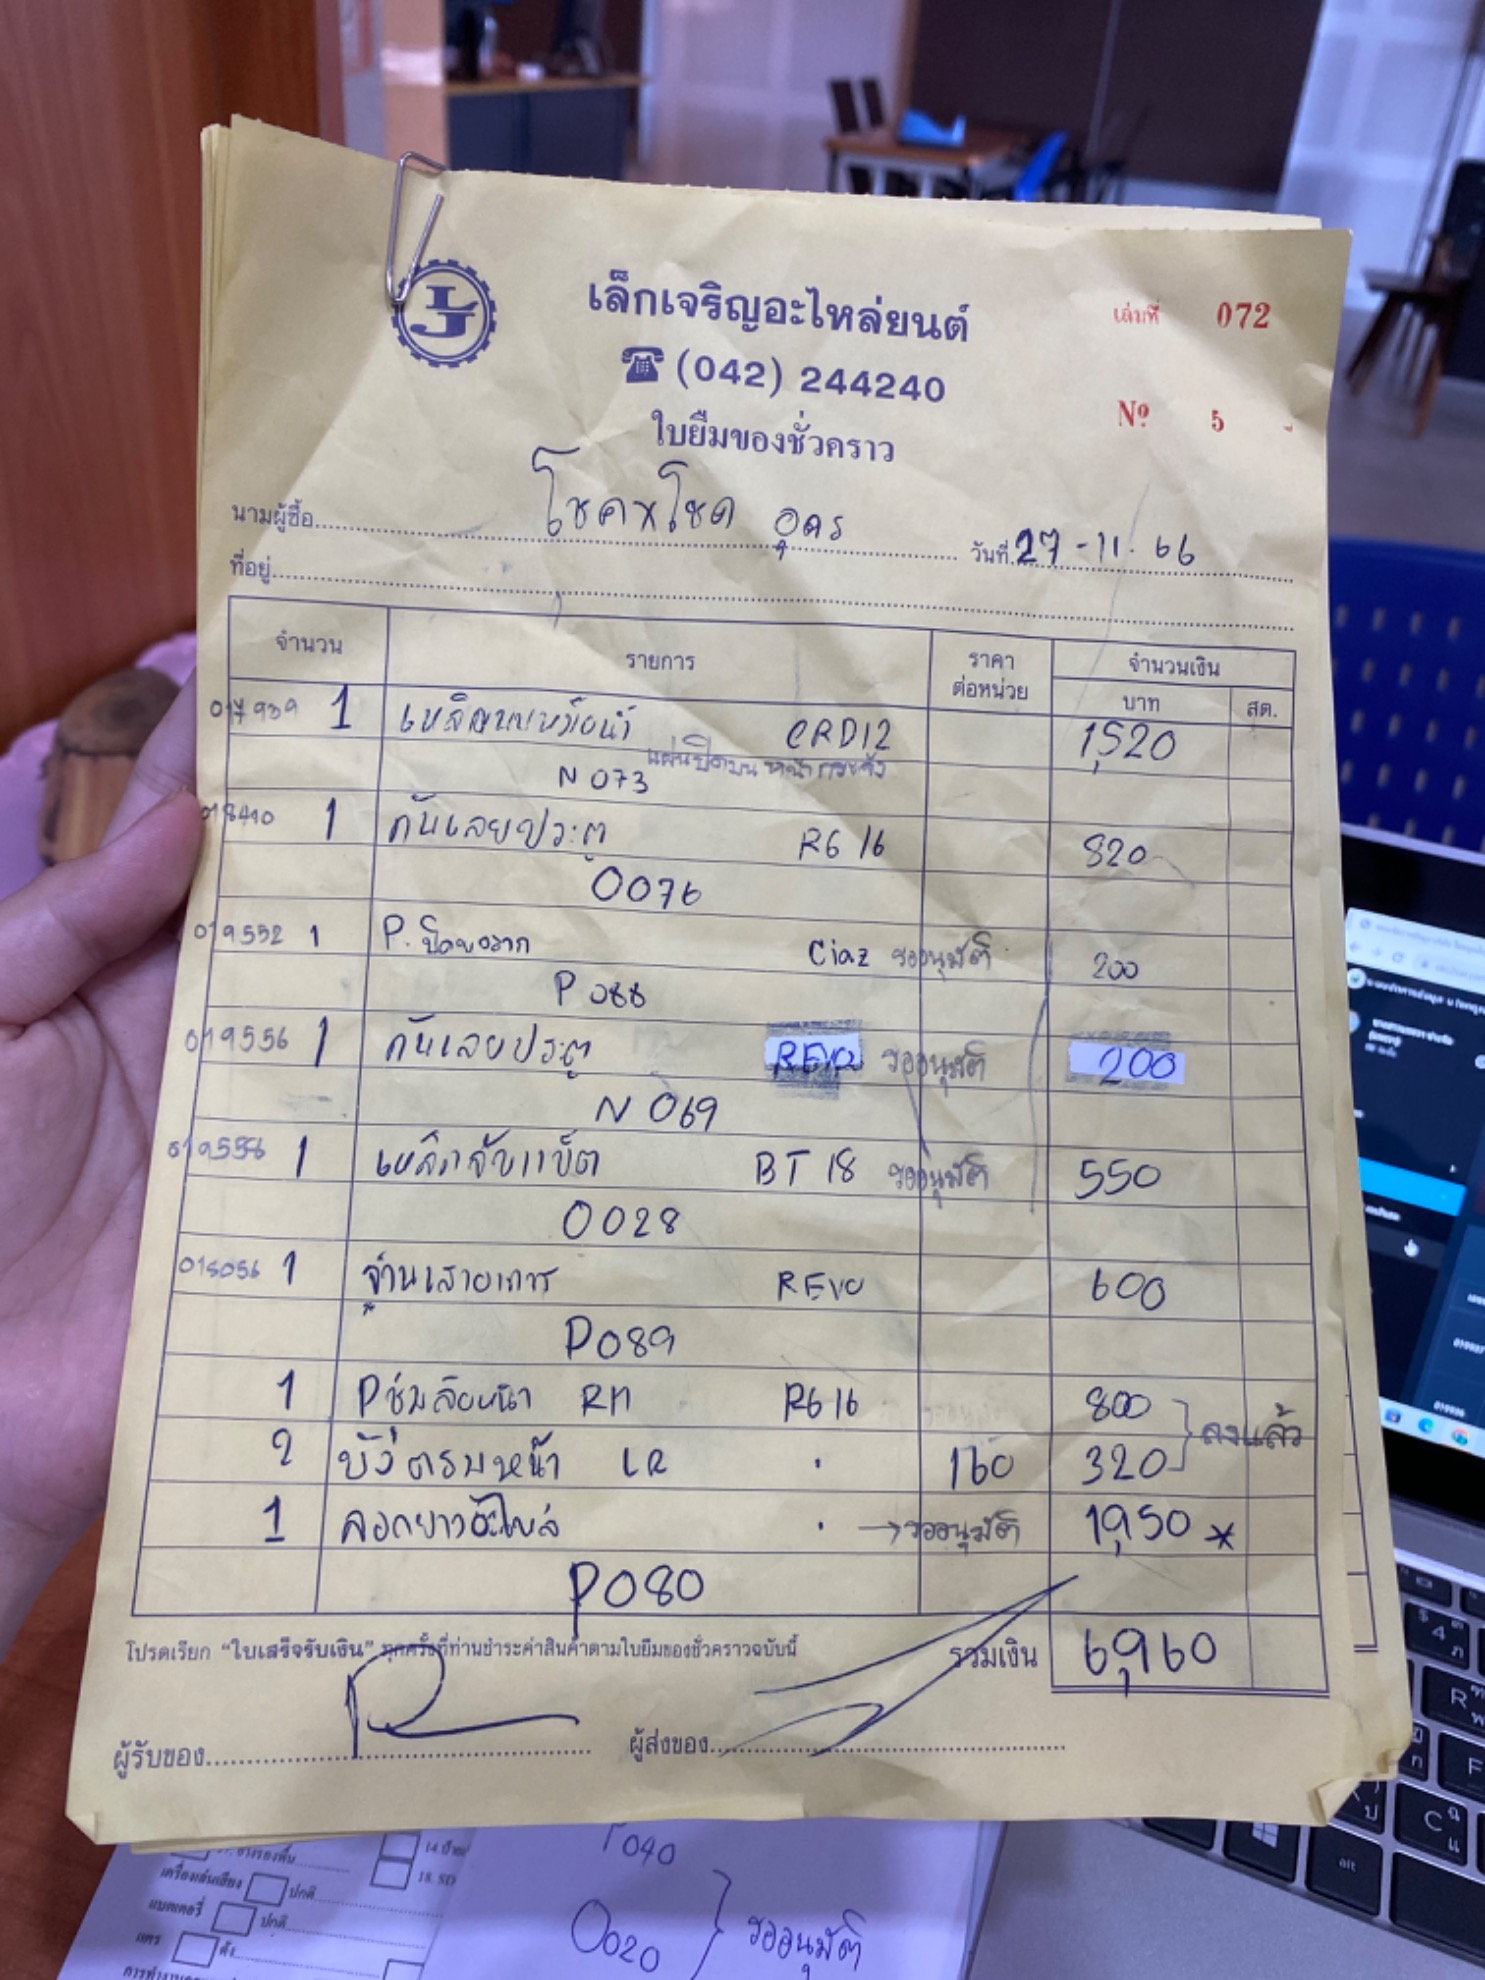 LJ
เล็กเจริญอะไหล่ยนต์
เล่มที่ 072
(042) 244240
Nº 5
ใบยืมของชั่วคราว
นามผู้ซื้อ โชคxโชค อุดร วันที่ 27-11-66
ที่อยู่
จำนวน รายการ ราคาต่อหน่วย จำนวนเงิน
บาท สต.
017939 1 CRD12 1,520
N 073 แผ่นปิดบน หน้ากระจัง
018410 1 กันเลยประตู RG 16 820
O076
019552 1 P. Ciaz รออนุมัติ 200
P 088
019556 1 กันเลยประตู REVO รออนุมัติ 200
N 069
1 เหล็กจับแบ็ต BT 18 รออนุมัติ 550
O028
018056 1 REVO 600
P089
1 RH RG 16 800
2 LR 160 320 ลงแล้ว
1 → รออนุมัติ 1,950 *
P080
โปรดเรียก "ใบเสร็จรับเงิน" ทุกครั้งที่ท่านชำระค่าสินค้าตามใบยืมของชั่วคราวฉบับนี้ รวมเงิน 6,960
ผู้รับของ ผู้ส่งของ
P040
14. ป้าย
เครื่องเล่นเสียง ปกติ 18. SD
แบตเตอรี่ ปกติ
แตร ดัง
O020 รออนุมัติ